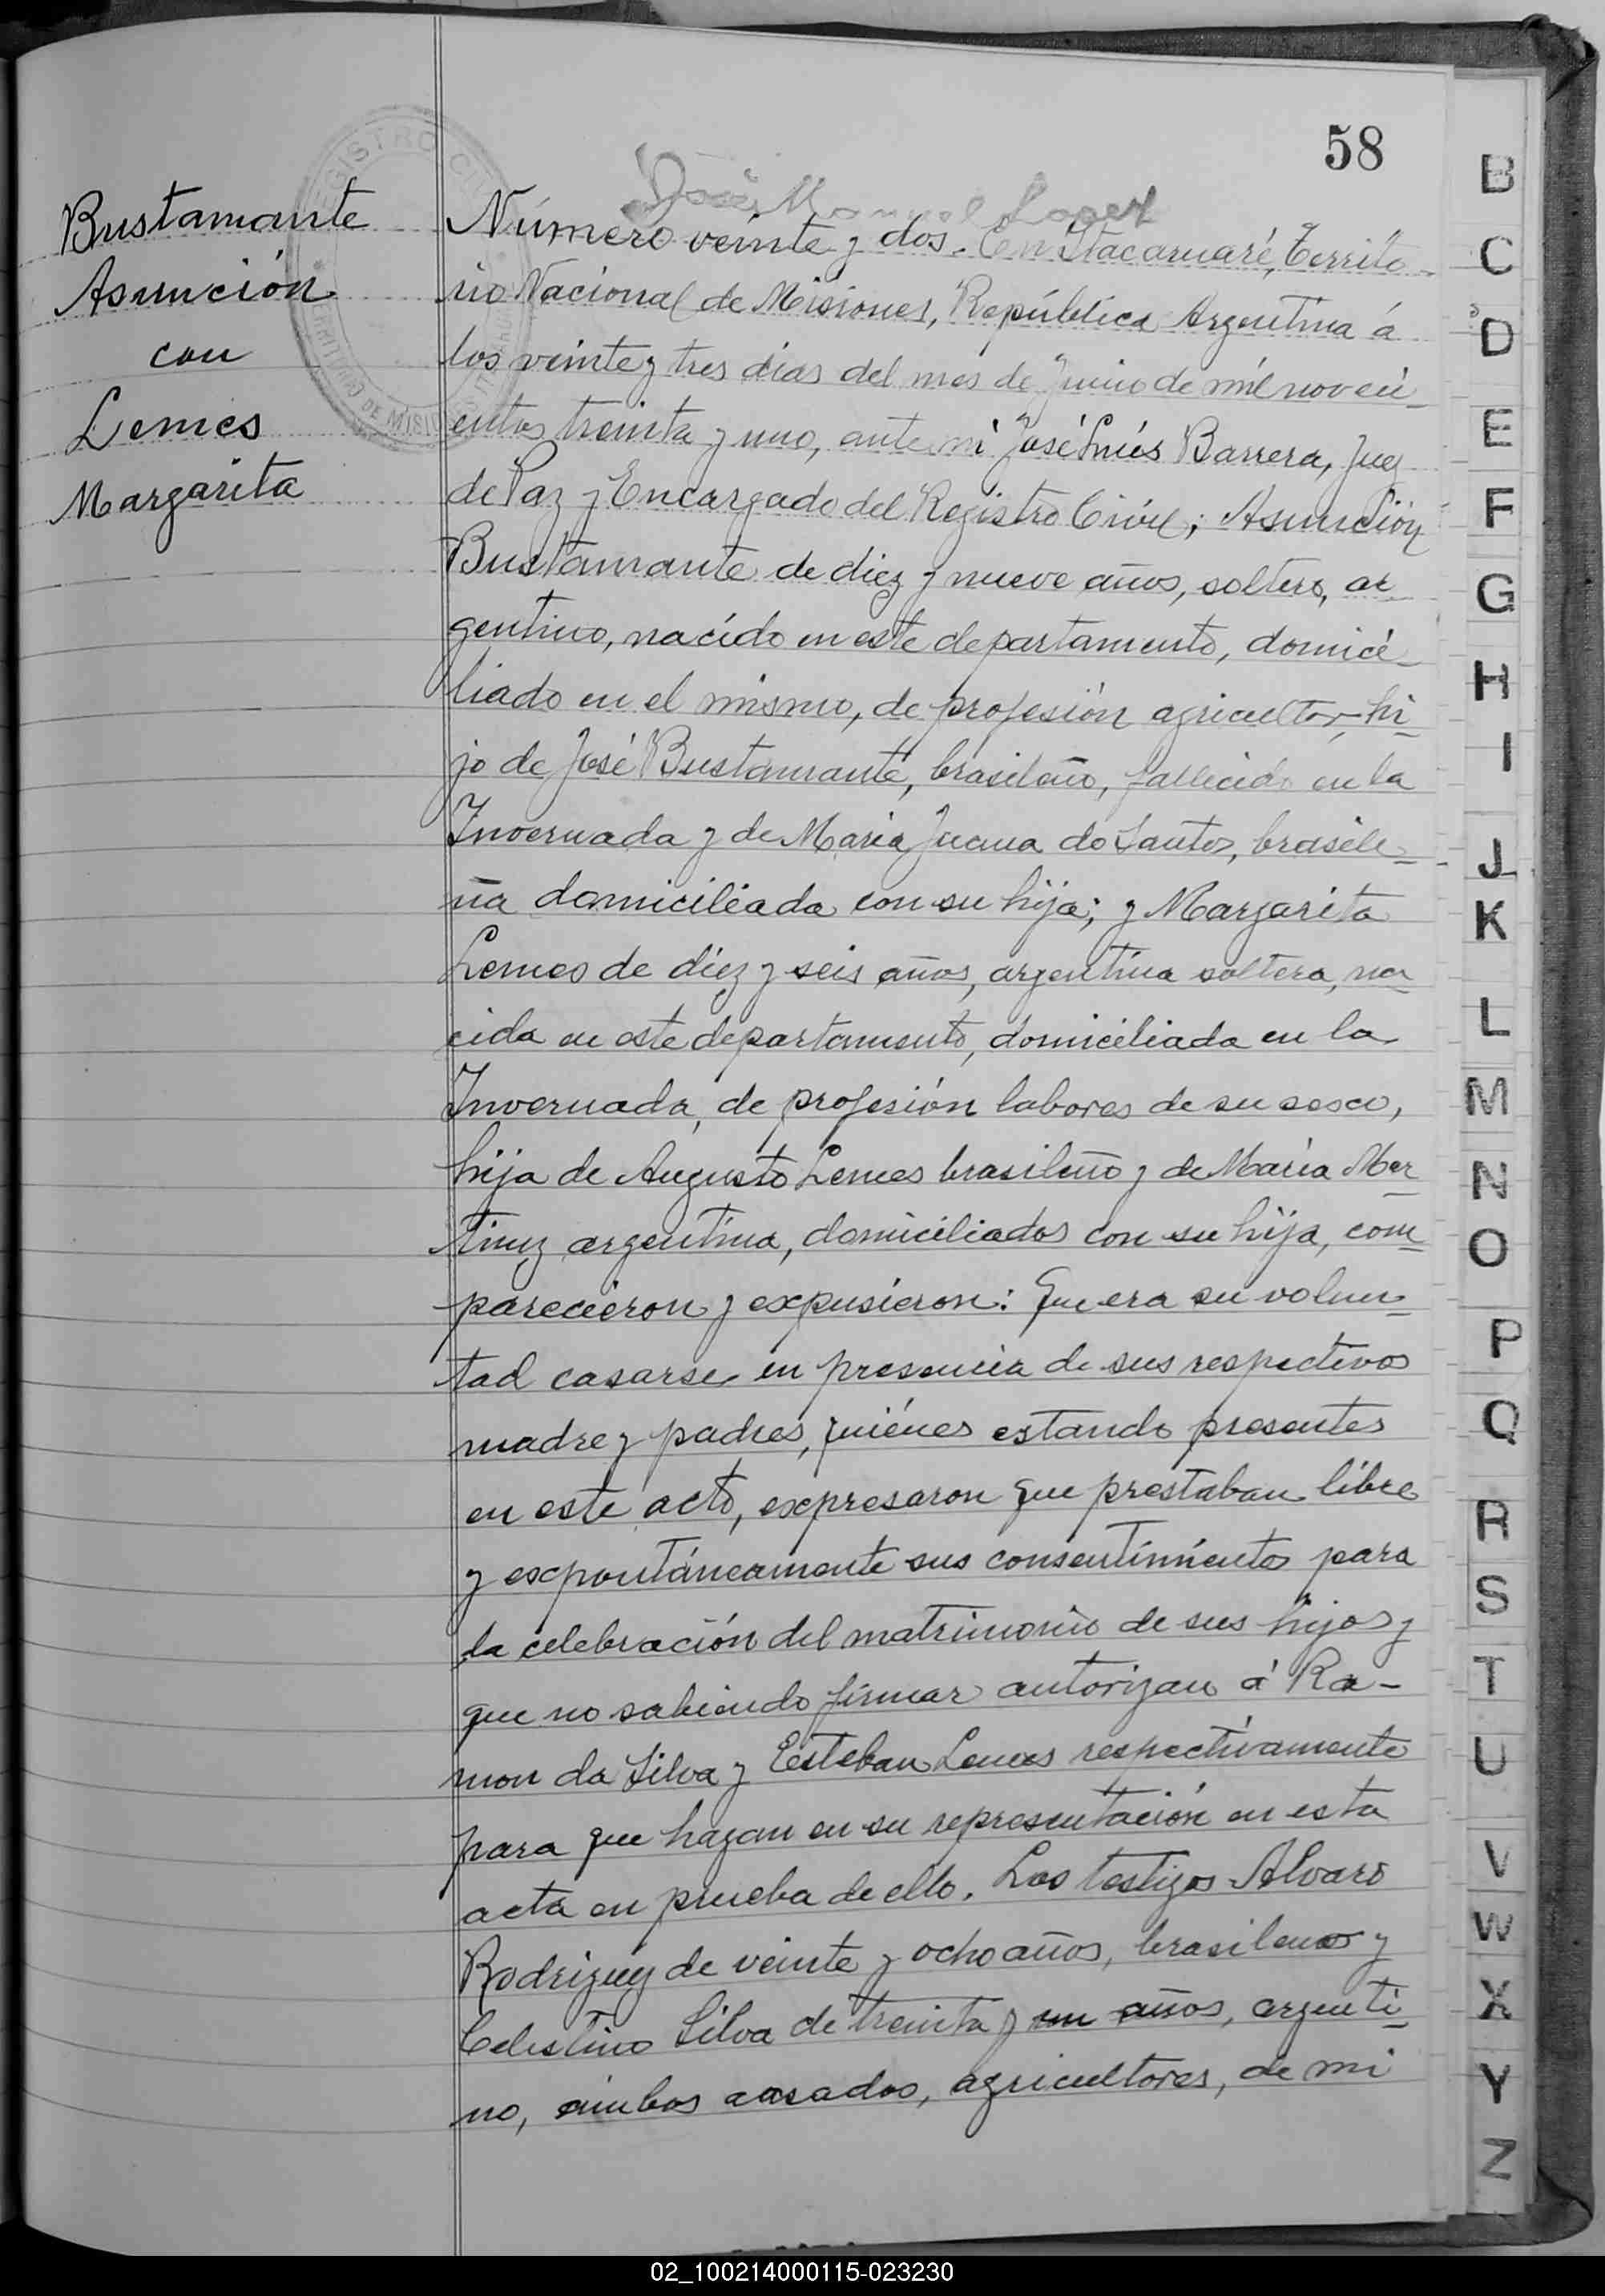 58
José Manuel Lopez
Bustamante
Asunción
con
Lemes
Margarita
REGISTRO CIVIL
TERRITORIO DE MISIONES
Número veinte y dos. En Itacaruaré, Territo-
rio Nacional de Misiones, República Argentina á
los veinte y tres dias del mes de Junio de mil noveci-
entos treinta y uno, ante mi José Luis Barrera, Juez
de Paz y Encargado del Registro Civil; Asunción
Bustamante de diez y nueve años, soltero, ar-
gentino, nacido en este departamento, domici-
liado en el mismo, de profesión agricultor, hi-
jo de José Bustamante, brasileño, fallecido en la
Invernada y de Maria Juana do Santos, brasile-
ña domiciliada con su hija; y Margarita
Lemes de diez y seis años, argentina soltera, na-
cida en este departamento, domiciliada en la
Invernada, de profesión labores de su sexo,
hija de Augusto Lemes brasileño y de María Mar-
tinez argentina, domiciliados con su hija, com-
parecieron y expusieron: Que era su volun-
tad casarse en presencia de sus respectivos
madre y padres, quiénes estando presentes
en este acto, expresaron que prestaban libre
y expontáneamente sus consentimientos para
la celebración del matrimonio de sus hijos y
que no sabiendo firmar autorizan á Ra-
mon da Silva y Esteban Lemes respectivamente
para que hagan en su representación en esta
acta en prueba de ello. Los testigos Alvaro
Rodriguez de veinte y ocho años, brasileno y
Celestino Silva de treinta y un años, argenti-
no, ambos casados, agricultores, de mi
B
C
D
E
F
G
H
I
J
K
L
M
N
O
P
Q
R
S
T
U
V
W
X
Y
Z
02_100214000115-023230